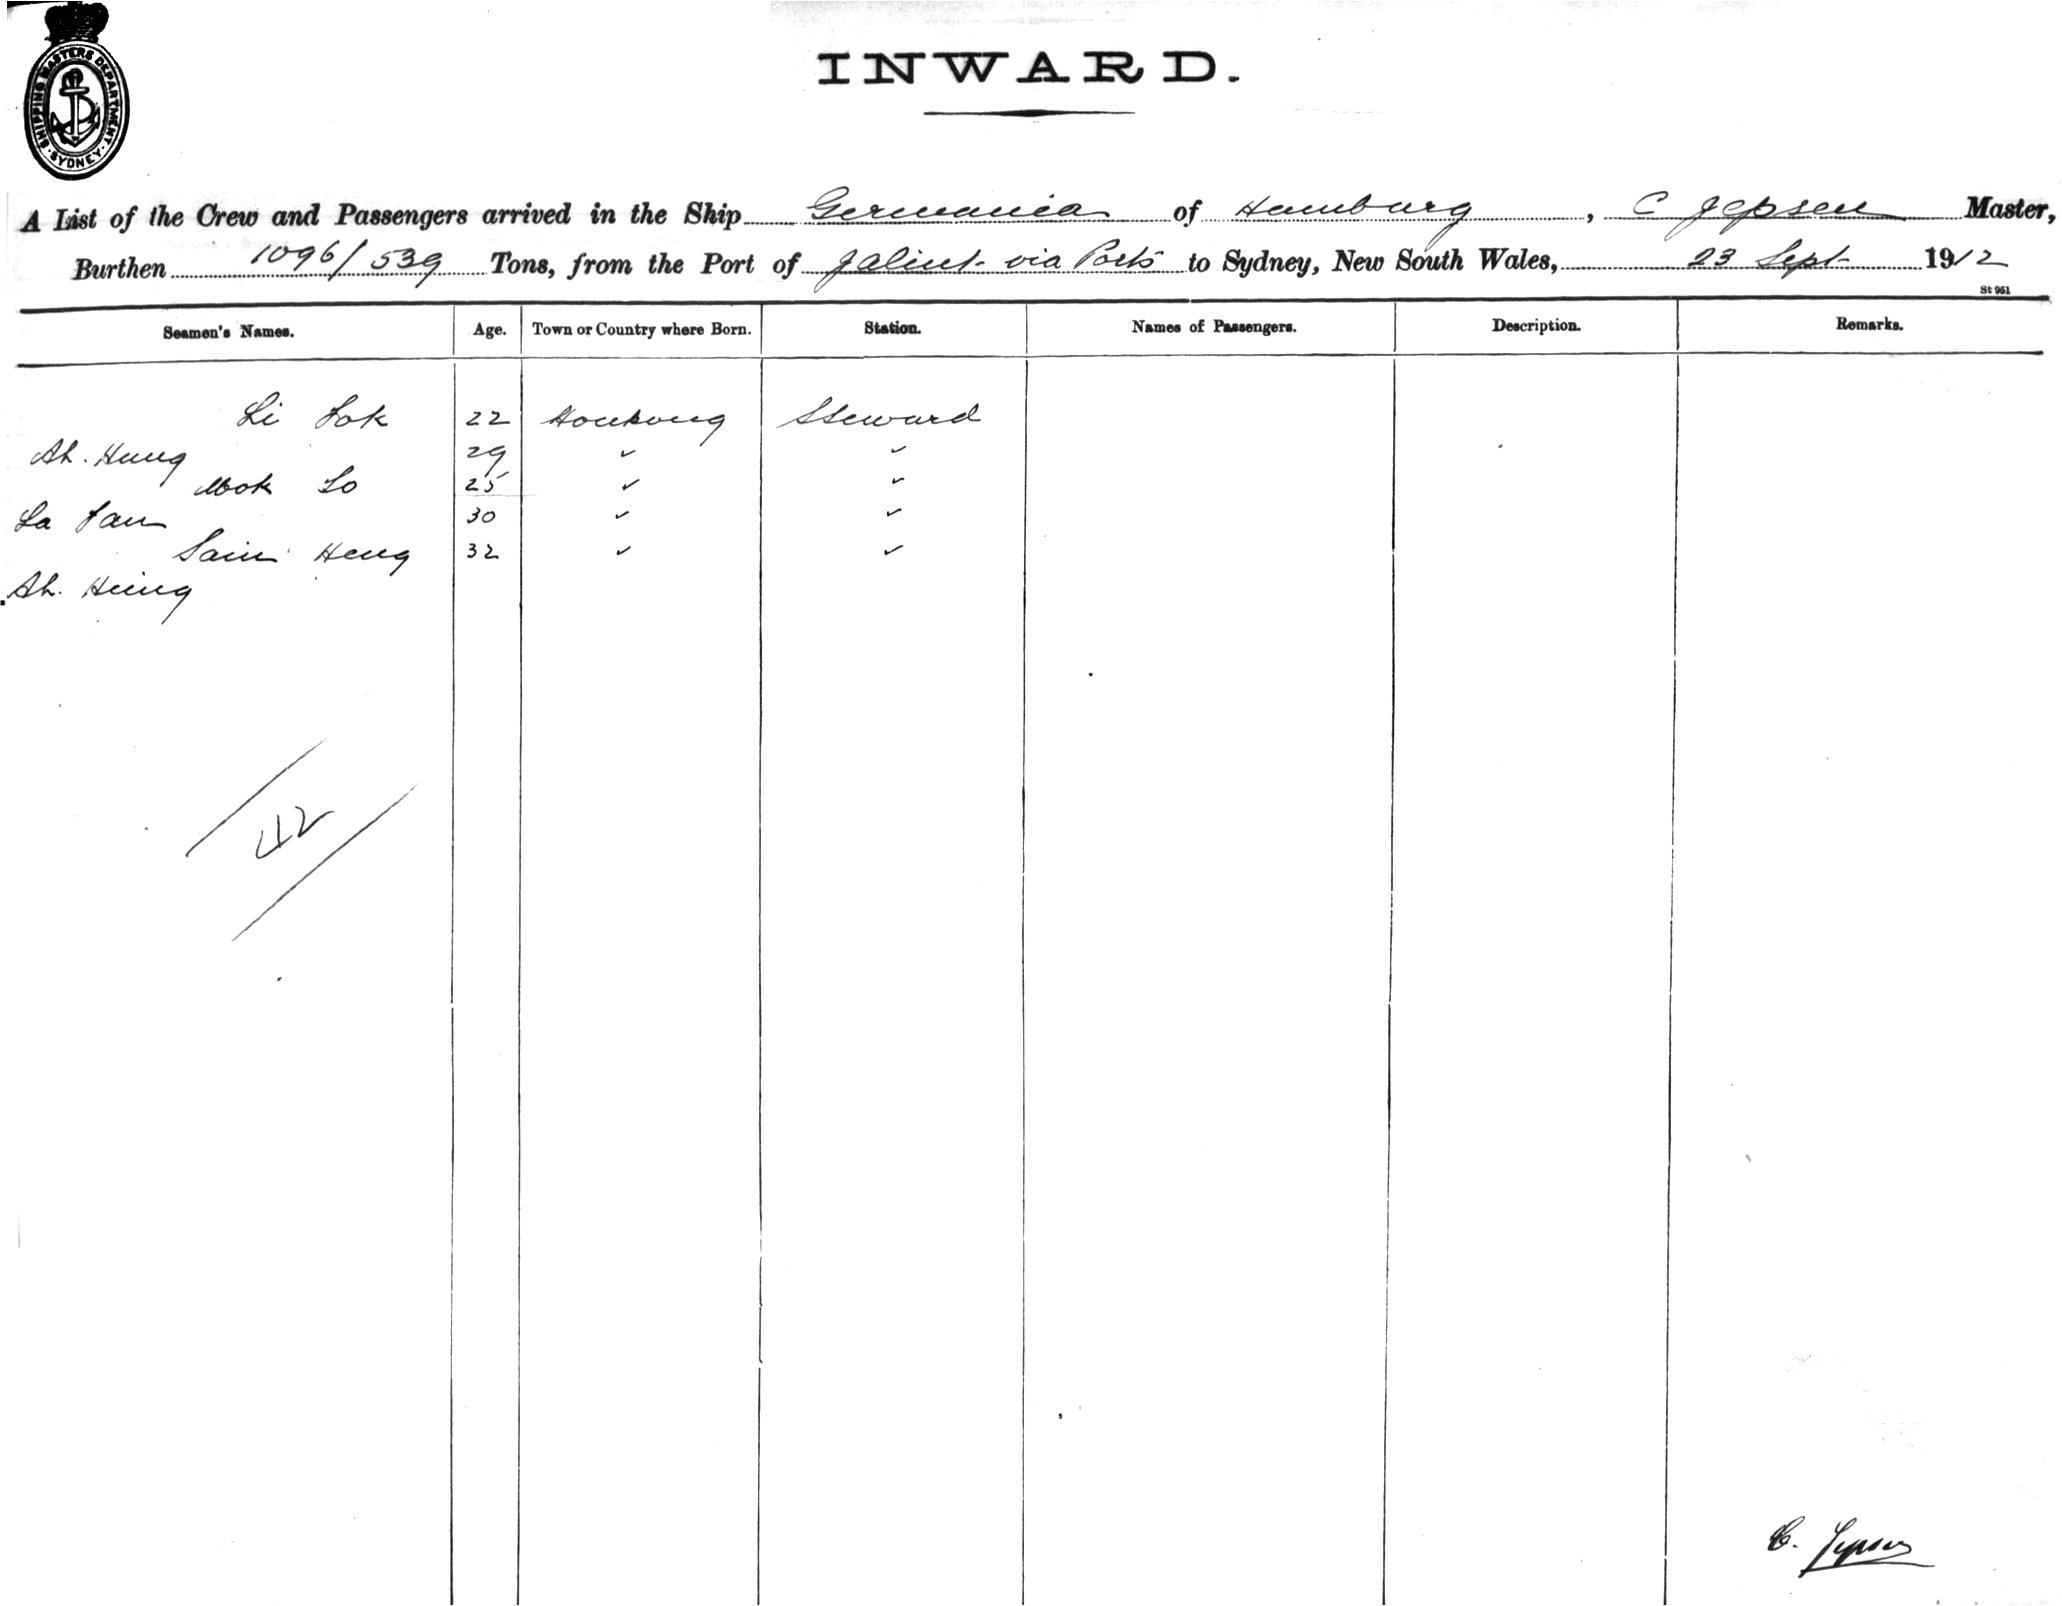 SHIPPING MASTERS DEPARTMENT
SYDNEY
INWARD.
A List of the Crew and Passengers arrived in the Ship Germania of Hamburg, C Jepsen Master,
Burthen 1096/539 Tons, from the Port of Jaluit via Ports to Sydney, New South Wales, 23 Sept 1912
St 961
Seamen's Names. Age. Town or Country where Born. Station. Names of Passengers. Description. Remarks.
Li Fok 22 Honkong Steward
Ah. Hung 29 ✓ ✓
Mok So 25 ✓ ✓
La Fan 30 ✓ ✓
Sain Heng 32 ✓ ✓
Ah. Hung
42
C. Jepsen